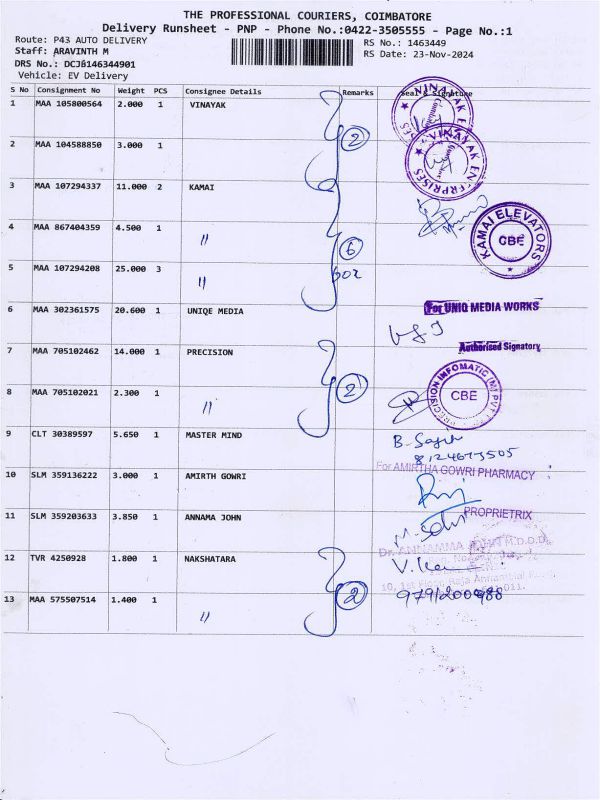 THE PROFESSIONAL COURIERS, COIMBATORE
Delivery Runsheet - PNP - Phone No.:0422-3505555 - Page No.:1
Route: P43 AUTO DELIVERY
Staff: ARAVINTH M
DRS No.: DCJB146344901
Vehicle: EV Delivery
RS No.: 1463449
RS Date: 23-Nov-2024
S No Consignment No Weight PCS Consignee Details Remarks Seal & Signature
1 MAA 105800564 2.000 1 VINAYAK
2
2 MAA 104588850 3.000 1
VINAYAK ENTERPRISES
3 MAA 107294337 11.000 2 KAMAI
KAMAI ELEVATORS
CBE
4 MAA 867404359 4.500 1 〃
6
box
5 MAA 107294208 25.000 3 〃
6 MAA 302361575 20.600 1 UNIQE MEDIA
For UNIQ MEDIA WORKS
Authorised Signatory
7 MAA 705102462 14.000 1 PRECISION
2
PRECISION INFOMATIC (M) PVT
CBE
8 MAA 705102021 2.300 1 〃
9 CLT 30389597 5.650 1 MASTER MIND
10 SLM 359136222 3.000 1 AMIRTH GOWRI
For AMIRTHA GOWRI PHARMACY
PROPRIETRIX
11 SLM 359203633 3.850 1 ANNAMA JOHN
Dr. ANNAMMA JOHN M.D.D.D.
12 TVR 4250928 1.800 1 NAKSHATARA
2
10, 1st Floor Raja Annamalai
13 MAA 575507514 1.400 1 〃